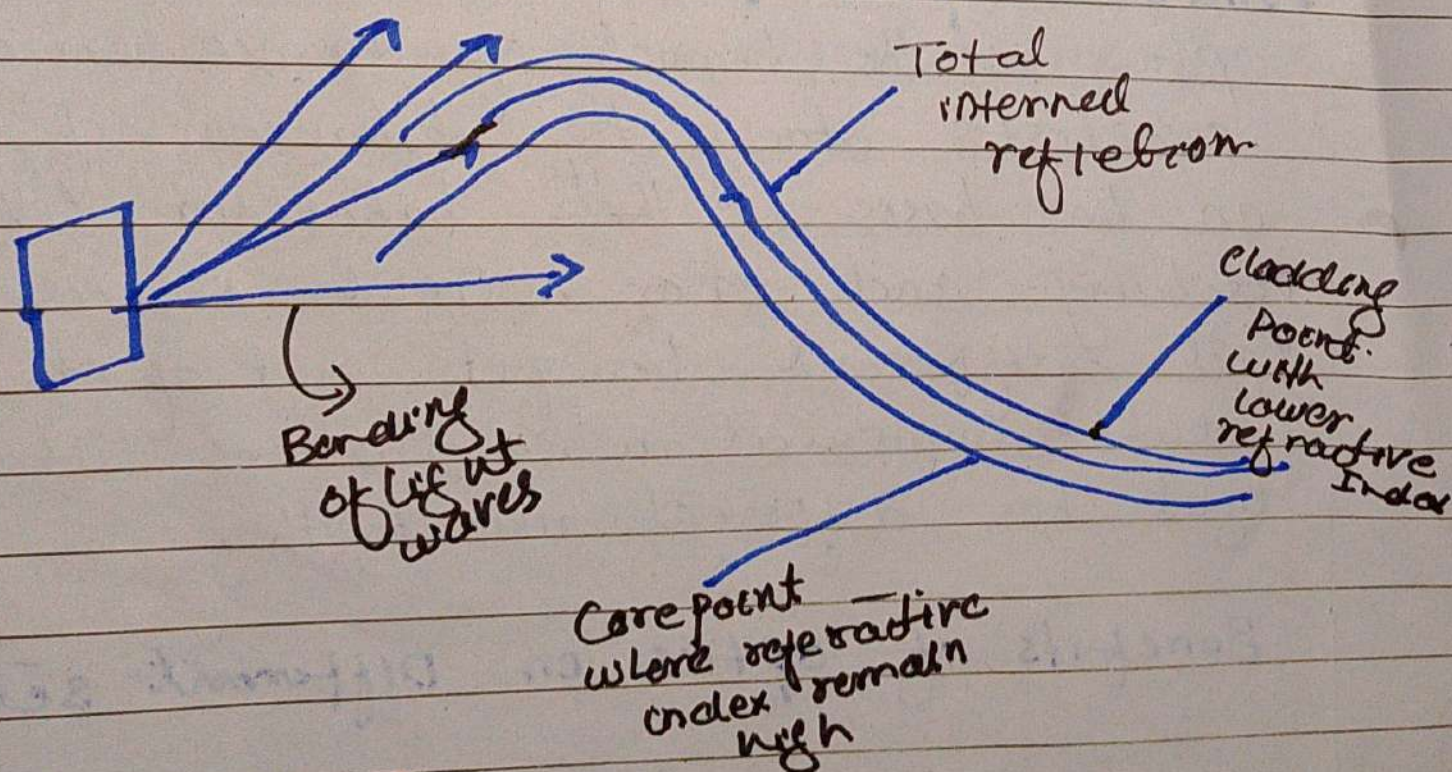 Total
internel
reflebrom
Cladding
Point.
with
lower
refractive
Index
Bending
of light
waves
Core point
where referactive
index remain
high
Benefits
Different